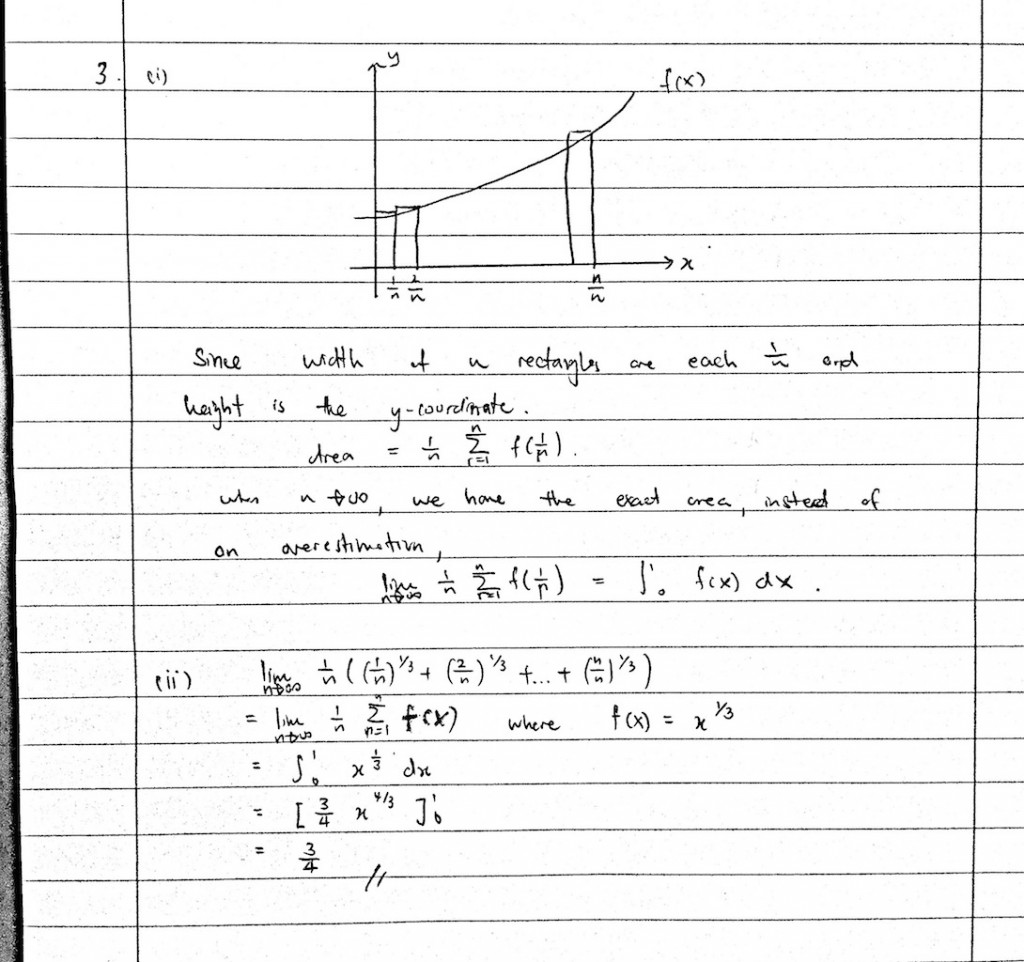 3. (i)
y
f(x)
x
1/n 2/n n/n
Since width of n rectangles are each 1/n and
height is the y-coordinate.
Area = 1/n Σ_{r=1}^{n} f(1/n).
when n→∞, we have the exact area, instead of
an overestimation,
lim_{n→∞} 1/n Σ_{r=1}^{n} f(1/n) = ∫_0^1 f(x) dx.
(ii) lim_{n→∞} 1/n ((1/n)^{1/3} + (2/n)^{1/3} + ... + (n/n)^{1/3})
= lim_{n→∞} 1/n Σ_{n=1}^{n} f(x) where f(x) = x^{1/3}
= ∫_0^1 x^{1/3} dx
= [3/4 x^{4/3}]_0^1
= 3/4 //